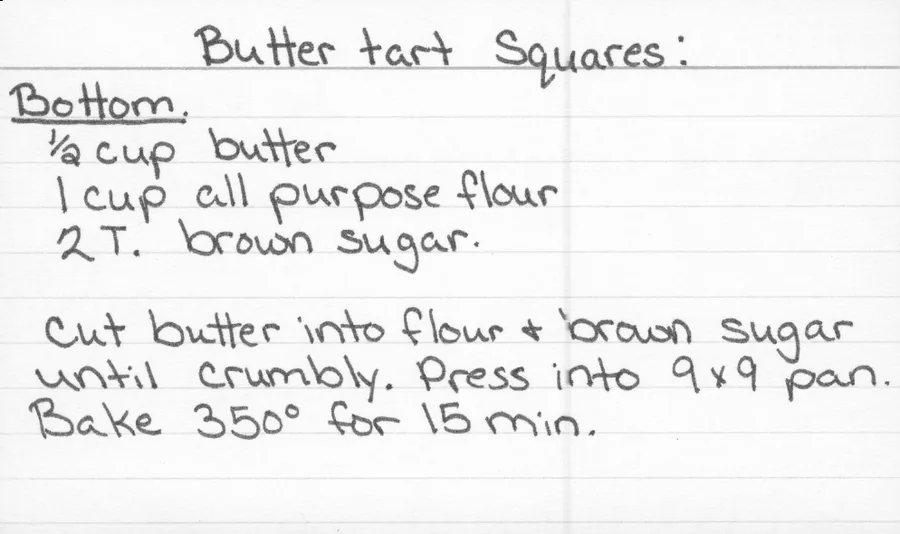 Butter tart Squares:
Bottom.
½ cup butter
1 cup all purpose flour
2 T. brown sugar.
Cut butter into flour & brown sugar
until crumbly. Press into 9x9 pan.
Bake 350° for 15 min.